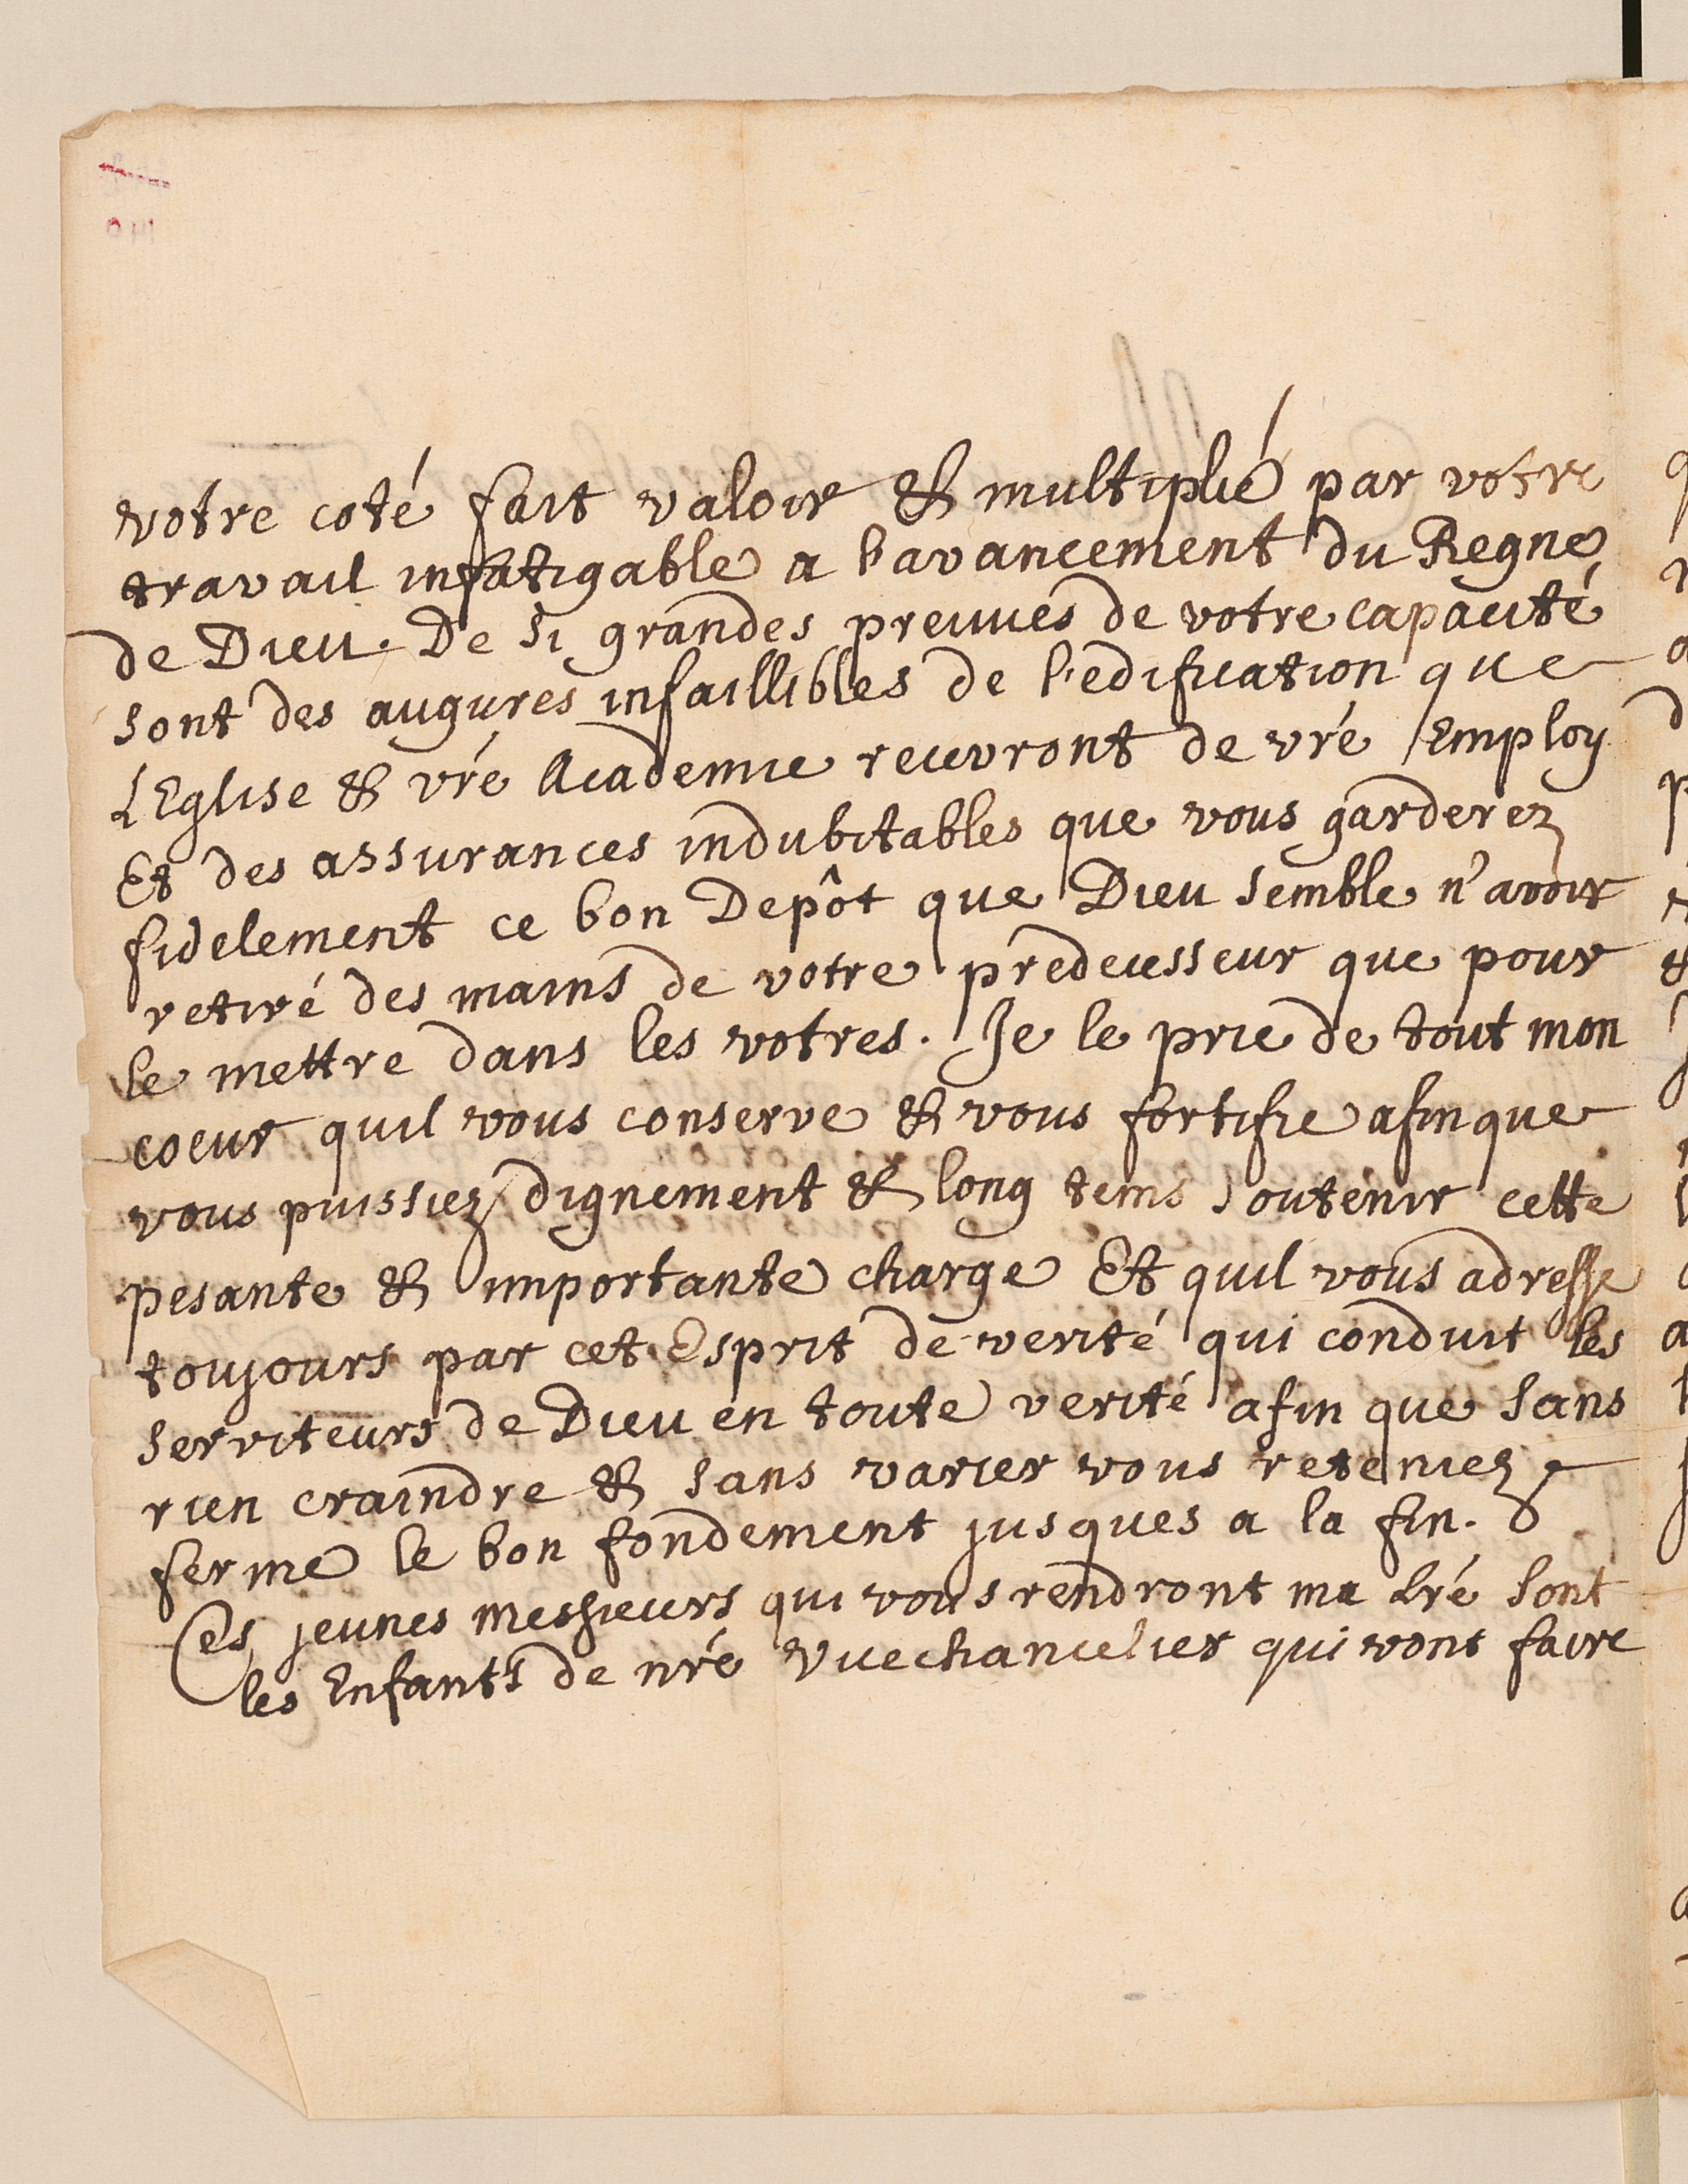 votre coté fait valoir & multiplié par votre
travail infatigable a l'avancement du Regne
de Dieu. De si grandes preuues de votre capacité
sont des augures infaillibles de l'edification que
LEglise & vr̃e Academie recevront de vr̃e Employ
Et des assurances indubitables que vous garderez
fidelement ce bon Depôt que Dieu semble n'avoir
retiré des mains de votre predecesseur que pour
le mettre dans les votres. Je le prie de tout mon
coeur quil vous conserve & vous fortifie afin que
vous puissiez dignement & long tems soutenir cette
pesante & importante charge Et quil vous adresse
toujours par cet Esprit de verité qui conduit les
serviteurs de Dieu en toute verité afin que sans
rien craindre & sans varier vous reteniez
ferme le bon fondement jusques a la fin.
Ces jeunes messieurs qui vous rendront ma lr̃e sont
les Enfants de nr̃e Vicechancelier qui vont faire